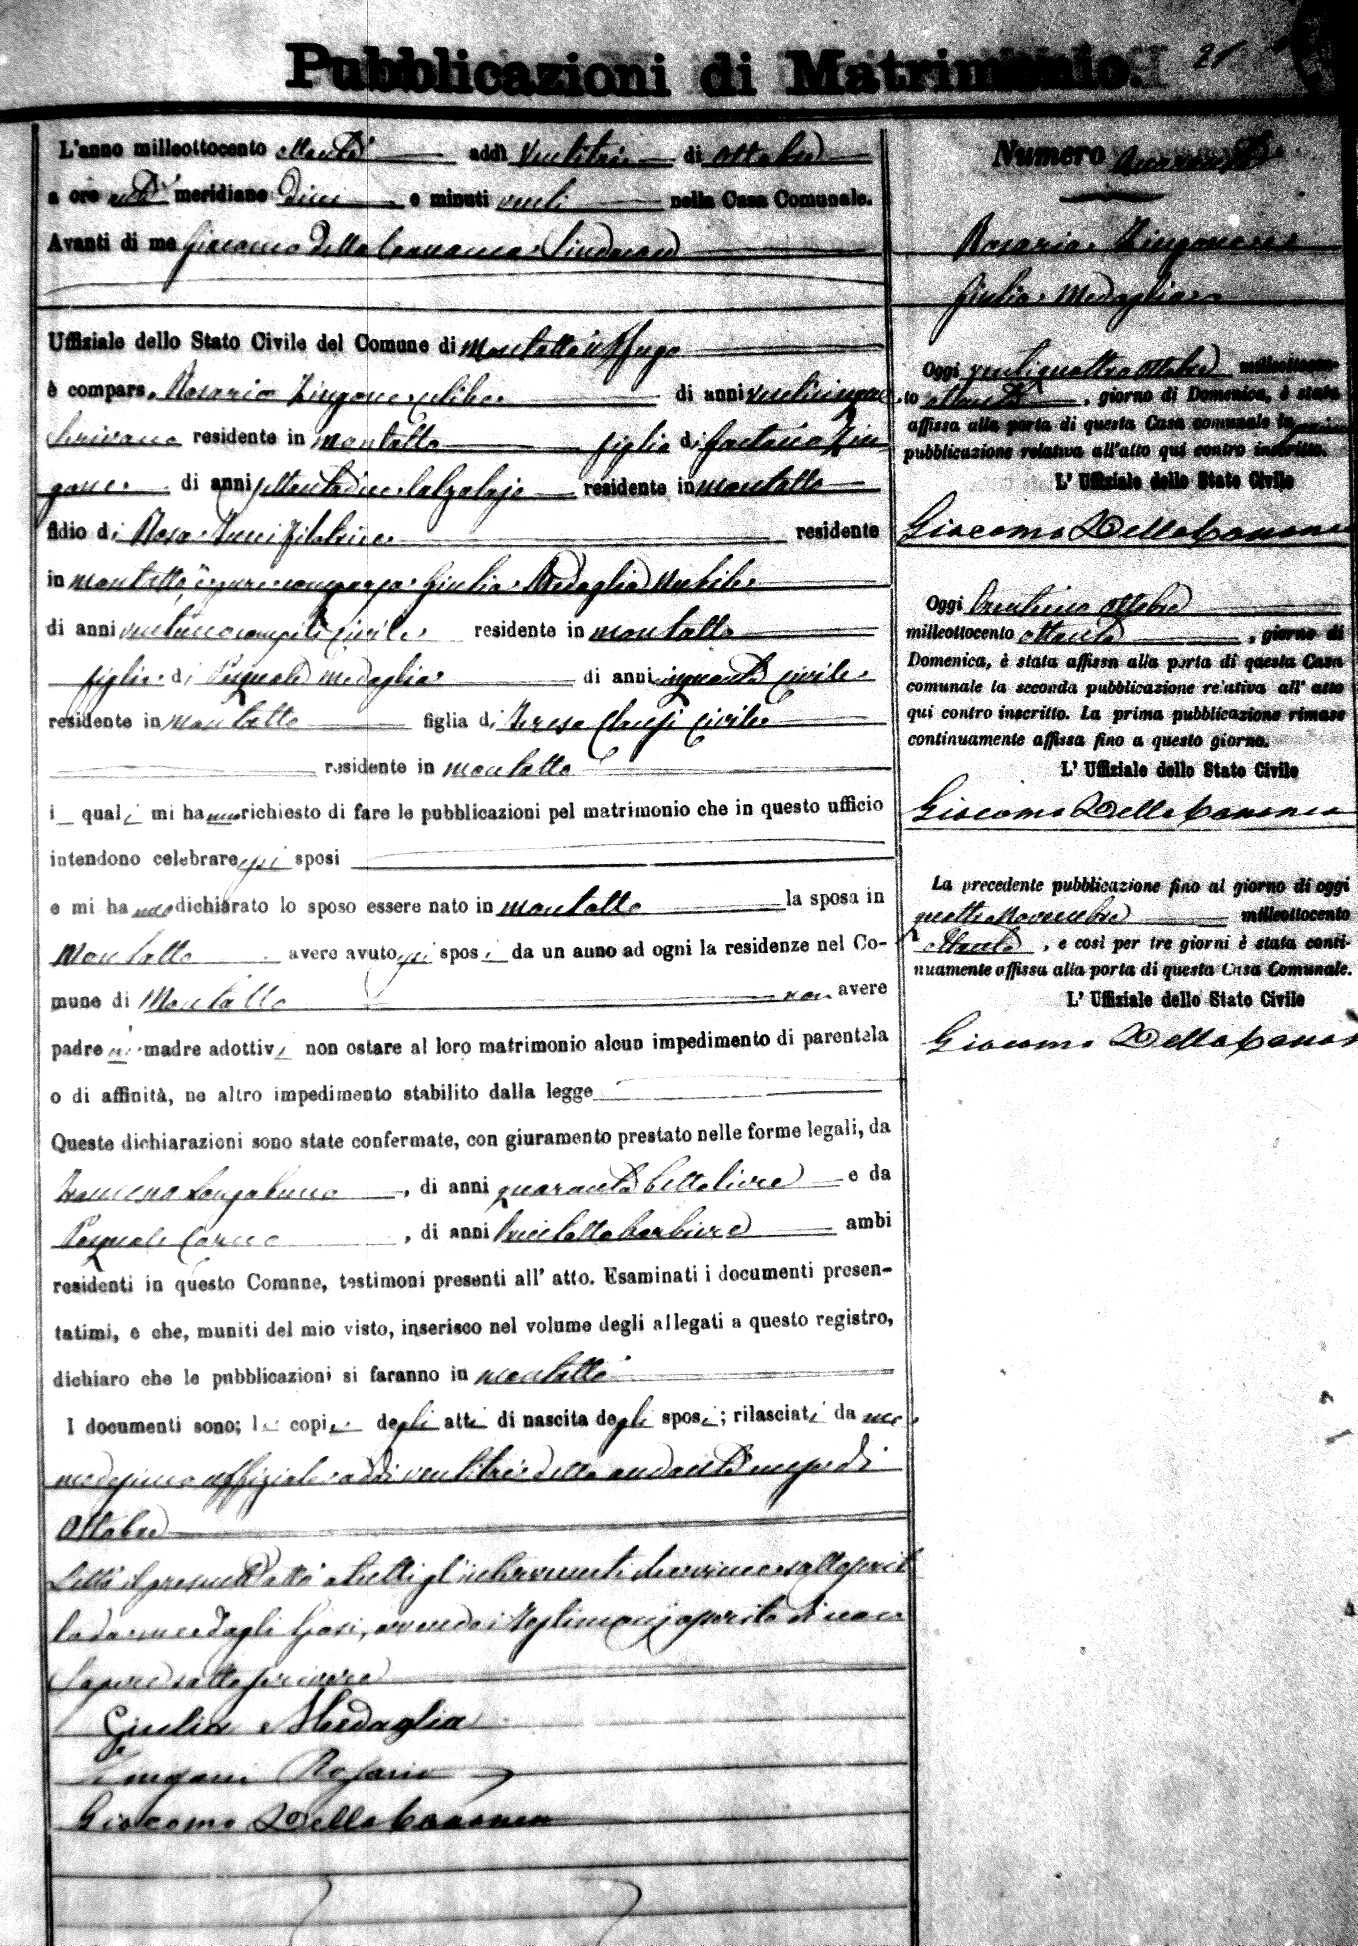 Pubblicazioni di Matrimonio.
21
L'anno milleottocento ottanta addì ventitrè di Ottobre
a ore anti meridiane dieci e minuti venti nella Casa Comunale.
Avanti di me Giacomo Della Cananea Sindaco
Uffiziale dello Stato Civile del Comune di Montalto Uffugo
è compars. Rosario Zingone celibe di anni venticinque
scrivano residente in Montalto figlio di Gaetano Zin
gone di anni settantadue calzolajo residente in Montalto
fidio di Rosa filatrice residente
in Montalto, è pure comparsa Giulia Medaglia nubile
di anni ventuno compiti civile residente in Montalto
figlia di Pasquale Medaglia di anni cinquanta civile
residente in Montalto figlia di Teresa civile
residente in Montalto
i quali mi hanno richiesto di fare le pubblicazioni pel matrimonio che in questo ufficio
intendono celebrare essi sposi
e mi hanno dichiarato lo sposo essere nato in Montalto la sposa in
Montalto avere avuto gli sposi da un anno ad ogni la residenze nel Co-
mune di Montalto non avere
padre nè madre adottivi non ostare al loro matrimonio alcun impedimento di parentela
o di affinità, ne altro impedimento stabilito dalla legge
Queste dichiarazioni sono state confermate, con giuramento prestato nelle forme legali, da
Francesco Longobucco, di anni quaranta bettoliere e da
Pasquale, di anni trentotto barbiere ambi
residenti in questo Comnne, testimoni presenti all' atto. Esaminati i documenti presen-
tatimi, e che, muniti del mio visto, inserisco nel volume degli allegati a questo registro,
dichiaro che le pubblicazioni si faranno in Montalto
I documenti sono; le copie degli atti di nascita degli sposi; rilasciati da me
medesimo uffiziale addì ventitrè dello andante mese di
Ottobre
Letto il presente atto a tutti gl'intervenuti viene sottoscrit
to da me e dagli sposi, avendo i testimonj asserito di non
sapere sottoscrivere
Giulia Medaglia
Zingoni Rosario
Giacomo Della Cananea
Numero
Rosario Zingone e
Giulia Medaglia
Oggi ventiquattro Ottobre milleottocen-
to ottanta, giorno di Domenica, è stata
affissa alla porta di questa Casa comunale la prima
pubblicazione relativa all'atto qui contro inscritto.
L' Uffiziale dello Stato Civile
Giacomo Della Cananea
Oggi trentuno Ottobre
milleottocento ottanta, giorno di
Domenica, è stata affissa alla porta di questa Casa
comunale la seconda pubblicazione relativa all' atto
qui contro inscritto. La prima pubblicazione rimase
continuamente affissa fino a questo giorno.
L' Uffiziale dello Stato Civile
Giacomo Della Cananea
La precedente pubblicazione fino al giorno di oggi
quattro Novembre milleottocento
ottanta, e così per tre giorni è stata conti-
nuamente affissa alla porta di questa Casa Comunale.
L' Uffiziale dello Stato Civile
Giacomo Della Cananea